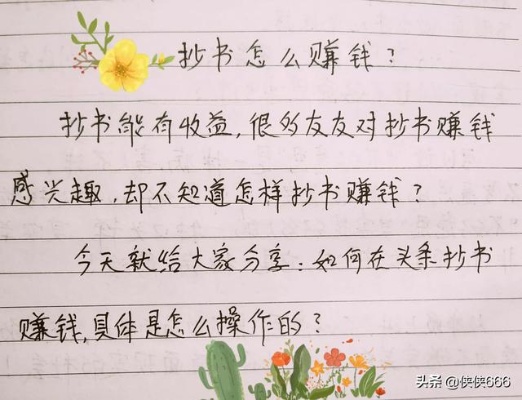 抄书怎么赚钱？
抄书能有收益，很多友友对抄书赚钱
感兴趣，却不知道怎样抄书赚钱？
今天就给大家分享：如何在头条抄书
赚钱，具体是怎么操作的？
头条 @侠侠666